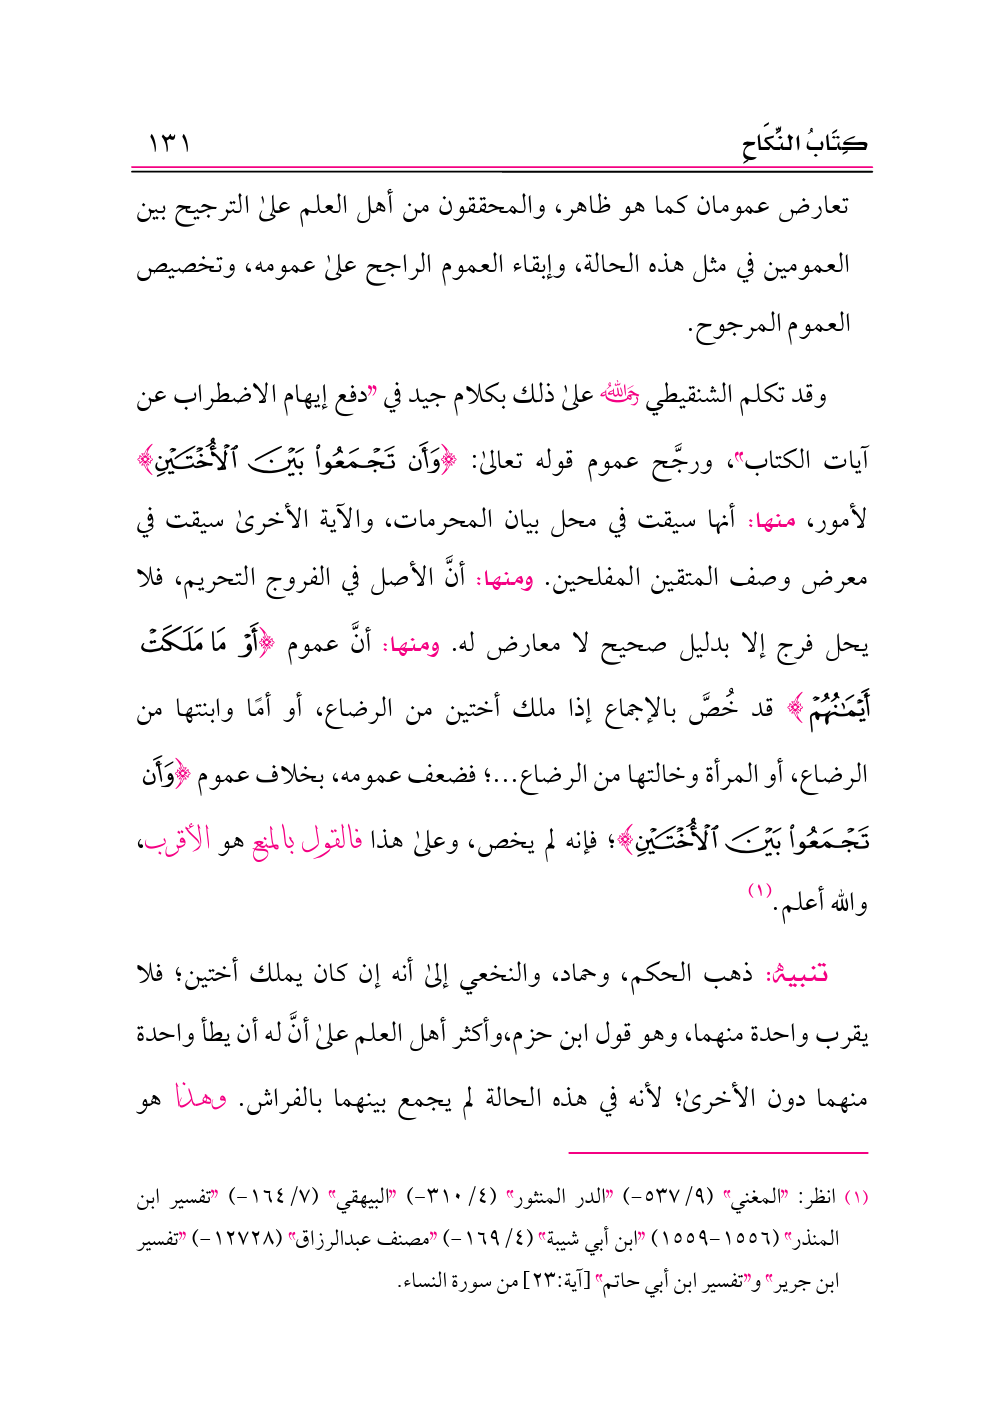 كِتَابُ النِّكَاحِ ١٣١
تعارض عمومان كما هو ظاهر، والمحققون من أهل العلم علىٰ الترجيح بين
العمومين في مثل هذه الحالة، وإبقاء العموم الراجح علىٰ عمومه، وتخصيص
العموم المرجوح.
وقد تكلم الشنقيطي رحمه الله علىٰ ذلك بكلام جيد في "دفع إيهام الاضطراب عن
آيات الكتاب"، ورجَّح عموم قوله تعالىٰ: ﴿وَأَن تَجْمَعُواْ بَيْنَ ٱلْأُخْتَيْنِ﴾
لأمور، منها: أنها سيقت في محل بيان المحرمات، والآية الأخرىٰ سيقت في
معرض وصف المتقين المفلحين. ومنها: أنَّ الأصل في الفروج التحريم، فلا
يحل فرج إلا بدليل صحيح لا معارض له. ومنها: أنَّ عموم ﴿أَوْ مَا مَلَكَتْ
أَيْمَٰنُهُمْ﴾ قد خُصَّ بالإجماع إذا ملك أختين من الرضاع، أو أمًا وابنتها من
الرضاع، أو المرأة وخالتها من الرضاع...؛ فضعف عمومه، بخلاف عموم ﴿وَأَن
تَجْمَعُواْ بَيْنَ ٱلْأُخْتَيْنِ﴾؛ فإنه لم يخص، وعلىٰ هذا فالقول بالمنع هو الأقرب،
والله أعلم.(١)
تنبيه: ذهب الحكم، وحماد، والنخعي إلىٰ أنه إن كان يملك أختين؛ فلا
يقرب واحدة منهما، وهو قول ابن حزم،وأكثر أهل العلم علىٰ أنَّ له أن يطأ واحدة
منهما دون الأخرىٰ؛ لأنه في هذه الحالة لم يجمع بينهما بالفراش. وهذا هو
(١) انظر: "المغني" (٩/ ٥٣٧-) "الدر المنثور" (٤/ ٣١٠-) "البيهقي" (٧/ ١٦٤-) "تفسير ابن
المنذر" (١٥٥٦-١٥٥٩) "ابن أبي شيبة" (٤/ ١٦٩-) "مصنف عبدالرزاق" (١٢٧٢٨-) "تفسير
ابن جرير" و"تفسير ابن أبي حاتم" [آية:٢٣] من سورة النساء.